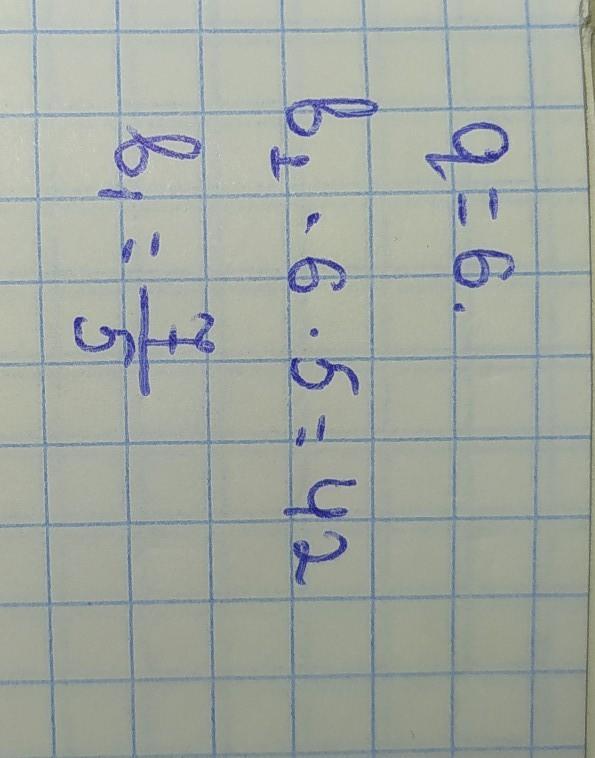 q = 6.
b₁ · 6 · 5 = 42
b₁ = 7/5